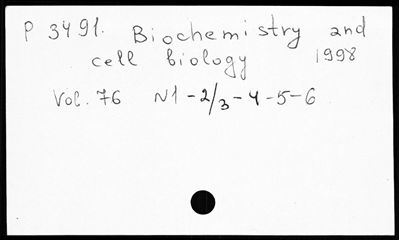 P 3491. Biochemistry and
cell biology 1998
Vol. 76 N1-2/3-4-5-6